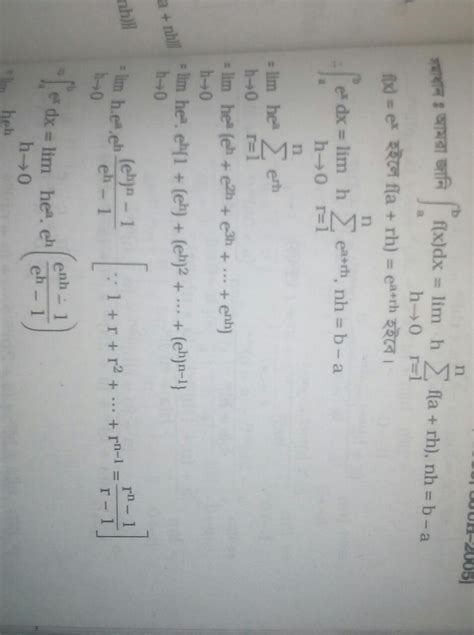 2005]
সমাধান : আমরা জানি ∫ₐᵇ f(x)dx = lim h→0 h ∑ r=1 n f(a + rh), nh = b – a
f(x) = eˣ হইলে f(a + rh) = eᵃ⁺ʳʰ হইবে।
∴ ∫ₐᵇ eˣ dx = lim h→0 h ∑ r=1 n eᵃ⁺ʳʰ, nh = b – a
= lim h→0 heᵃ ∑ r=1 n eʳʰ
= lim h→0 heᵃ (eʰ + e²ʰ + e³ʰ + ... + eⁿʰ)
= lim h→0 heᵃ. eʰ{1 + (eʰ) + (eʰ)² + ... + (eʰ)ⁿ⁻¹}
= lim h→0 h.eᵃ.eʰ (eʰ)ⁿ – 1 / eʰ – 1 [∵ 1 + r + r² + ... + rⁿ⁻¹ = rⁿ – 1 / r – 1]
∫ₐᵇ eˣ dx = lim h→0 heᵃ. eʰ (eⁿʰ – 1 / eʰ – 1)
heʰ
a + nh)}
nh)}